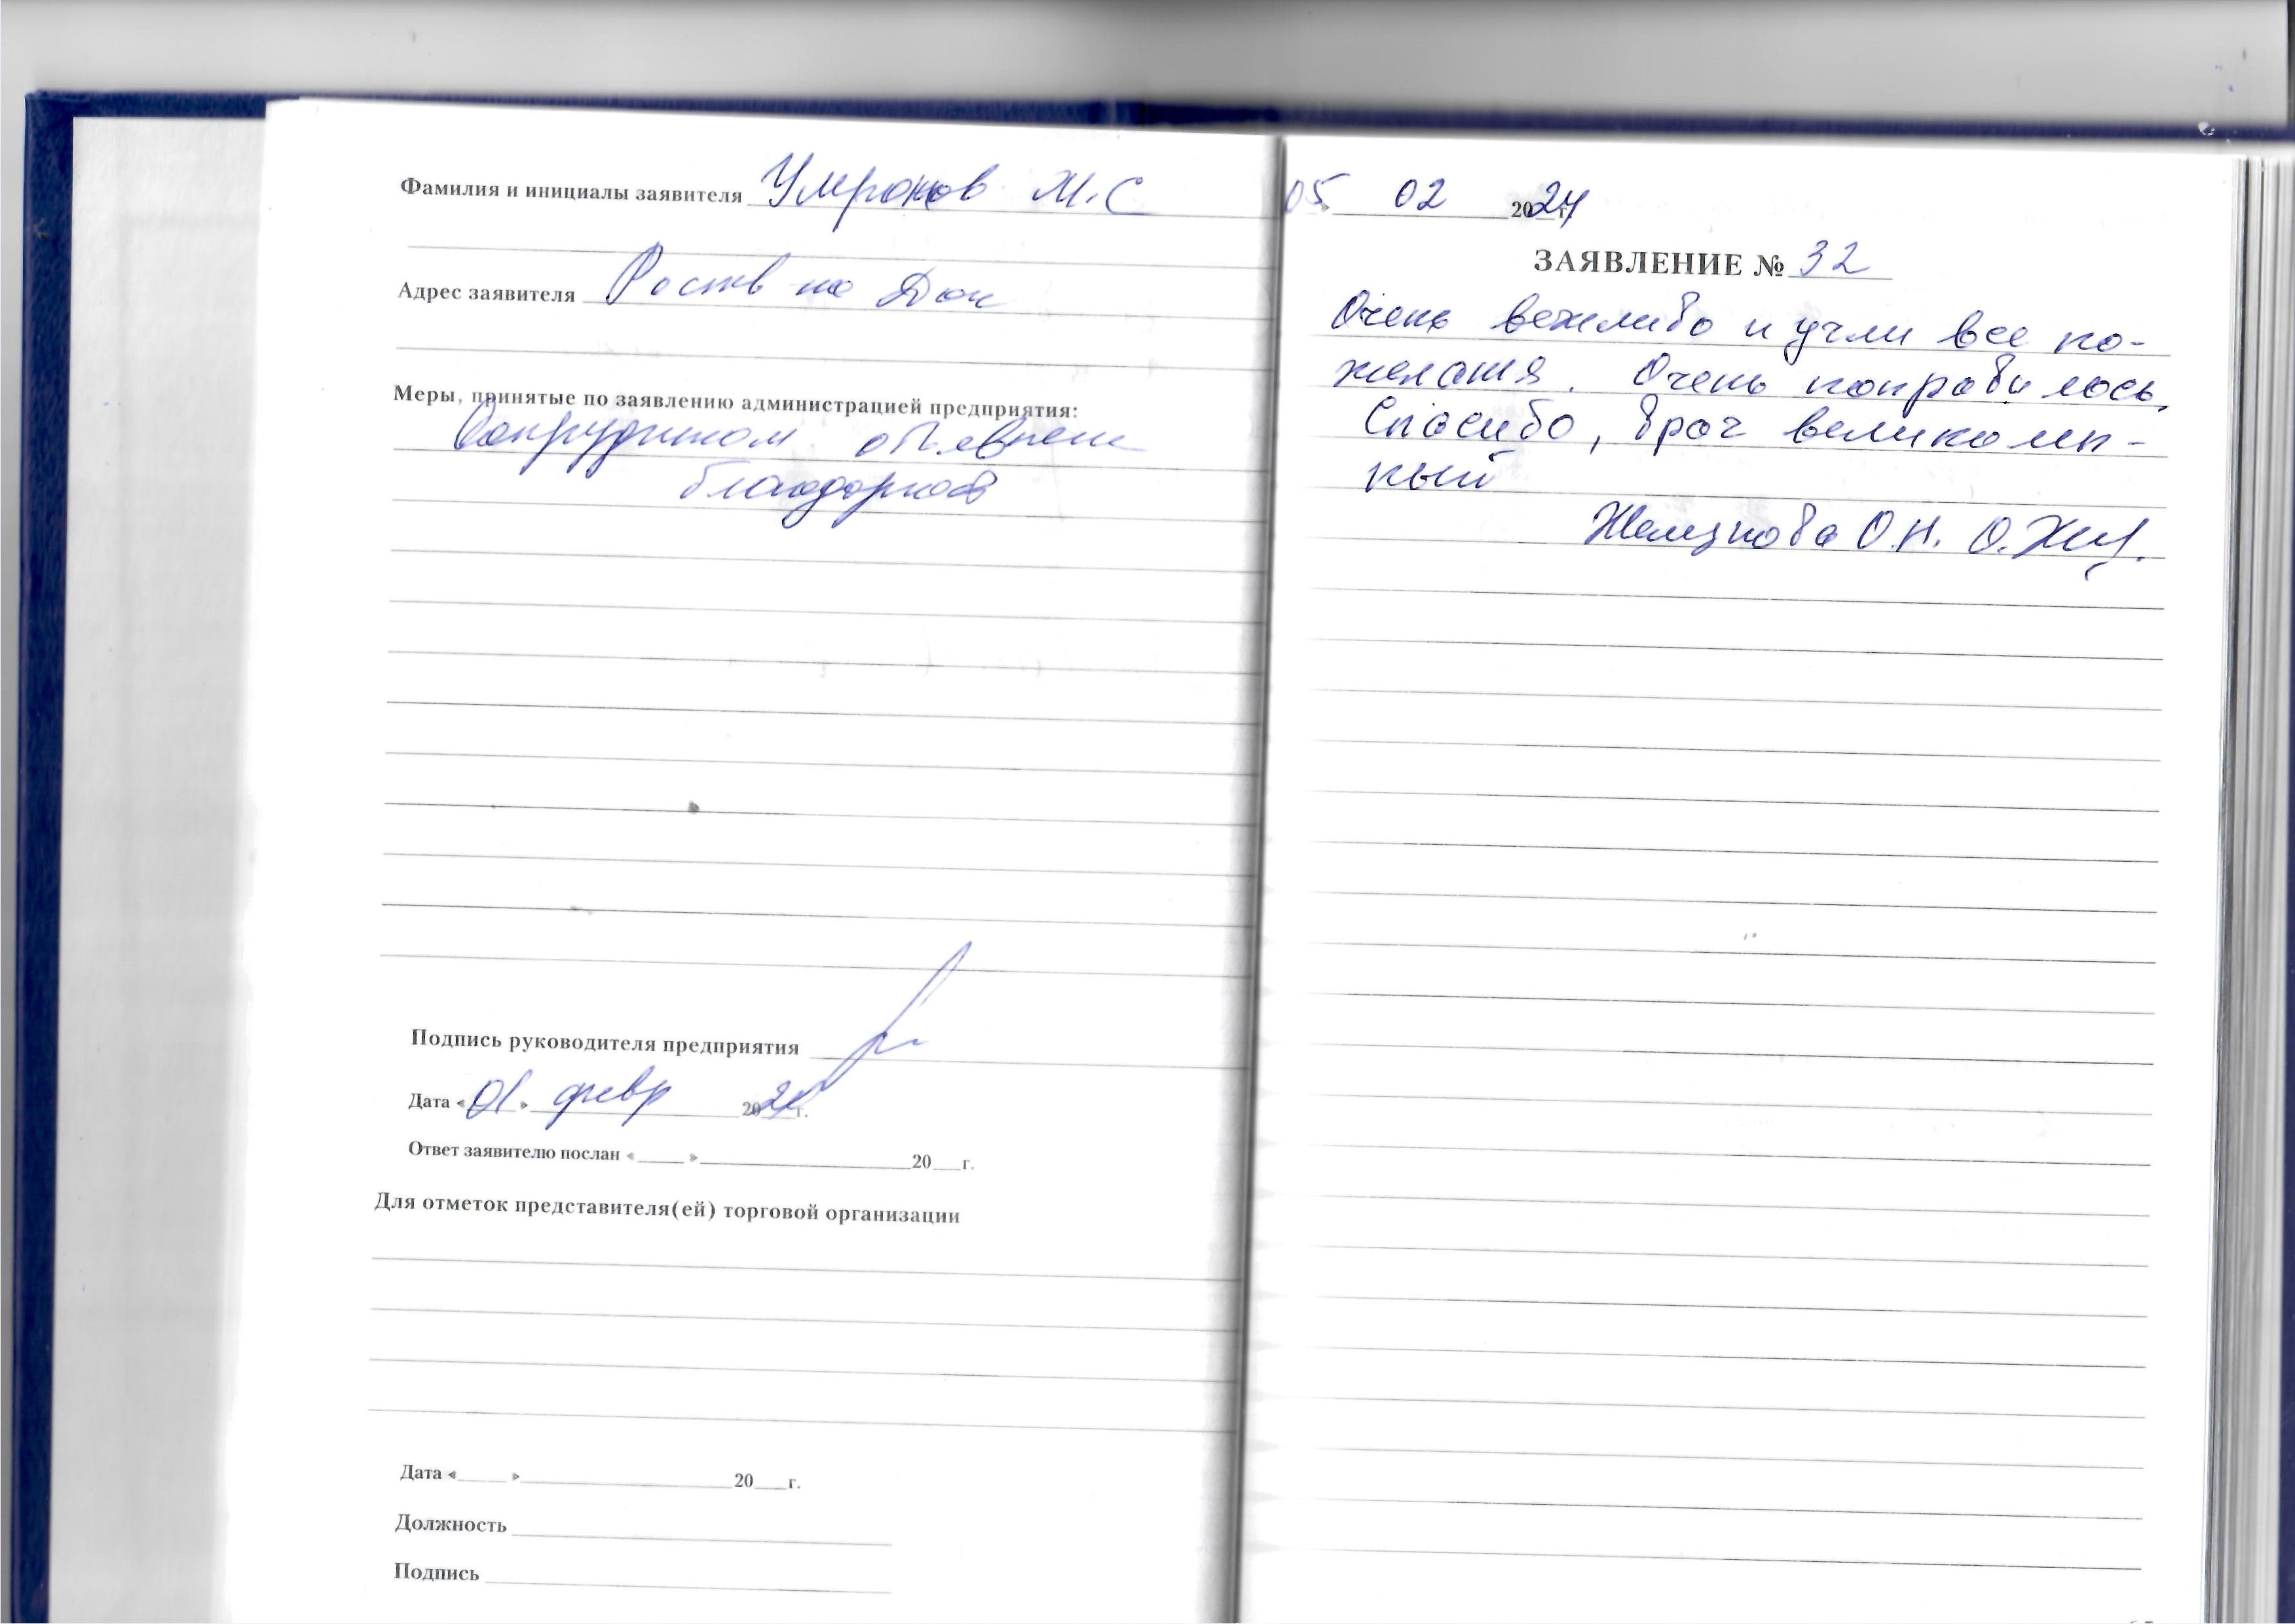 Фамилия и инициалы заявителя Умронов М.С
Адрес заявителя Роств на Дон
Меры, принятые по заявлению администрацией предприятия:
Сотрудникам объявлена
благодарность
Подпись руководителя предприятия
Дата «01» февр 2024г.
Ответ заявителю послан «____»____20__г.
Для отметок представителя(ей) торговой организации
Дата «____»____20__г.
Должность
Подпись
05 02 2024г.
ЗАЯВЛЕНИЕ № 32
Очень вежливо и учли все по-
желания. Очень понравилось.
Спасибо, врач великолеп-
ный
Железнова О.Н.